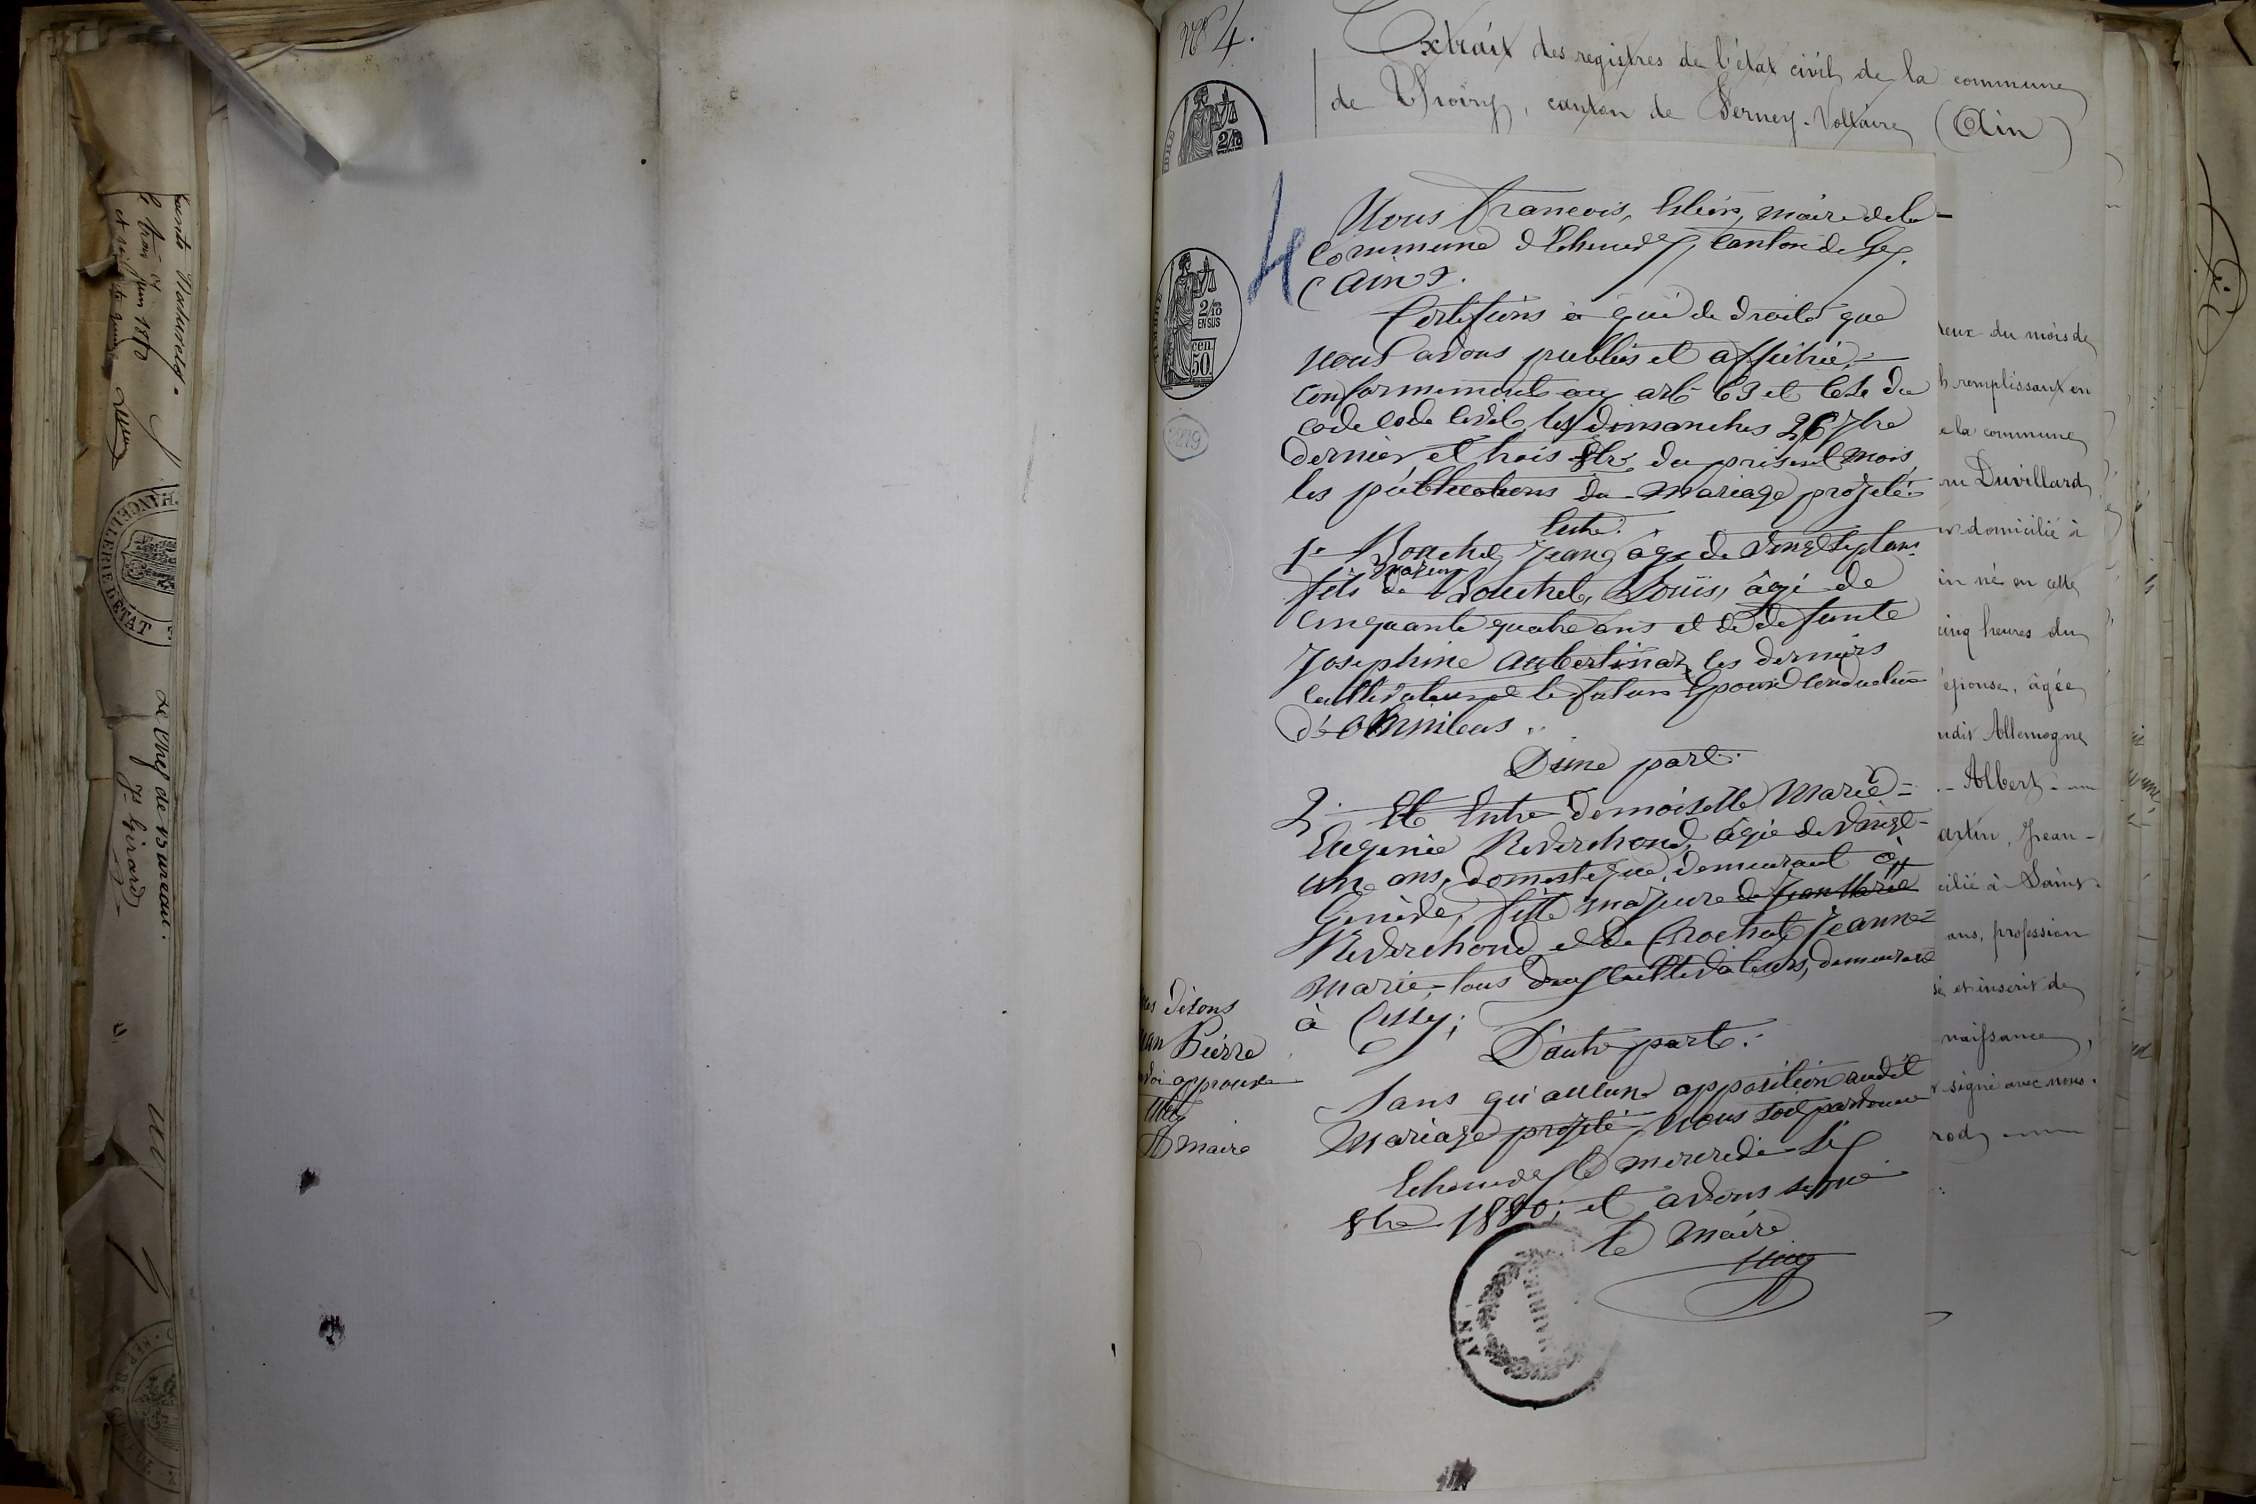 № 4.
Extrait des registres de l'état civil de la commune
de Thoiry, canton de Ferney-Voltaire (Ain)
2/10
4
Nous François, maire de la
Commune d'Echenevex, Canton de Gex
(Ain).
Certifions à qui de droit que
nous avons publiés et affichié,
conformément aux art 63 et 64 du
code code civil, les dimanches 26 7bre
dernier et trois 8bre du présent mois
les publications du mariage projeté
Entre.
1° Bouchet, Jean, âgé de vingt sept ans
majeur
fils de Bouchet, Louis, âgé de
cinquante quatre ans et de defunte
Josephine les derniers
cultivateurs et le futur Epoux conducteur
d'omnibus.
D'une part.
2° Et Entre demoiselle Marie
Eugenie Reverchond, âgée de vingt
un ans, domestique, demeurant à
Genève, fille majeure de Jean Marie
Reverchond et de Crochat Jeanne
Marie, tous deux cultivateurs, demeurant
à Cessy;
D'autre part.
Sans qu'aucune opposition audit
mariage projeté, nous soit parvenue
Echenevex le mercredi Six
8bre 1880; et avons signé
le Maire
TIMBRE
2/10
EN SUS
cen.
50
disons
Pierre
approuvé
maire
MAIRIE
AIN
deux du mois de
remplissant en
la commune
Duvillard
domicilié à
né en cette
cinq heures du
épouse, âgée
Allemogne
Albert
Martin, Jean-
à Saint-
ans, profession
et inscrit de
naissance,
signé avec nous.
CHANCELLERIE D'ETAT
Le Chef de Bureau.
Girard